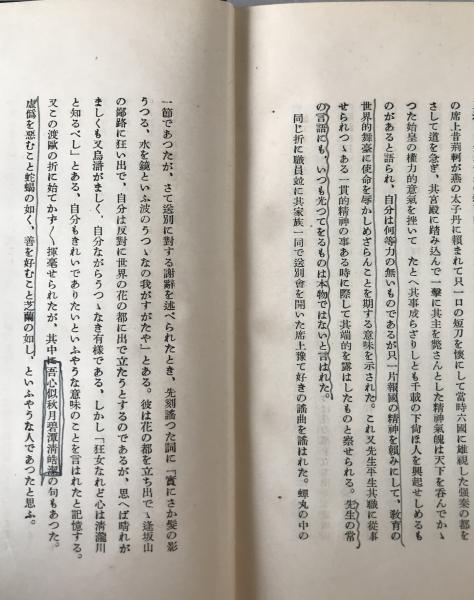 の席上昔荊軻が燕の太子丹に頼まれて只一口の短刀を懐にして當時六國に雄視した强秦の都を
さして道を急ぎ、其宮殿に踏み込んで一擊に其主を斃さんとした精神氣魄は天下を呑んでかゝ
つた始皇の權力的意氣を挫いて たとへ其事成らざりしとも千載の下尙ほ人を興起せしめるも
のがあると語られ、自分は何等力の無いものであるが只一片報國の精神を頼みにして、敎育の
世界的舞臺に使命を辱かしめざらんことを期する意味を示された。これ又先生平生其職に從事
せられつゝある一貫的精神の事ある時に際して其端的を露はしたものと察せられる。先生の常
の言語にも、いつも光つてをるものは本物ではないと言はれた。
同じ折に職員並に其家族一同で送別會を開いた席上豫て好の謠曲を謠はれた。蟬丸の中の
一節であつたが、さて送別に對する謝辭を述べられたとき、先刻謠つた詞に「實にさか髮の影
うつる、水を鏡といふ波のうつゝなの我がすがたや」とある。彼は花の都を立ち出でゝ逢坂山
の鄙路に狂い出で、自分は反對に世界の花の都に出で立たうとするのであるが、思へば晴れが
ましくも又烏滸がましく、自分ながらうつゝなき有樣である、しかし「狂女なれど心は淸瀧川
と知るべし」とある、自分もきれいでありたいといふやうな意味のことを言はれたと記憶する。
又この渡歐の折に始てかず〳〵揮毫せられたが、其中に吾心似秋月碧潭淸皓潔の句もあつた。
虛僞を惡むこと蛇蝎の如く、善を好むこと芝蘭の如し、といふやうな人であつたと思ふ。